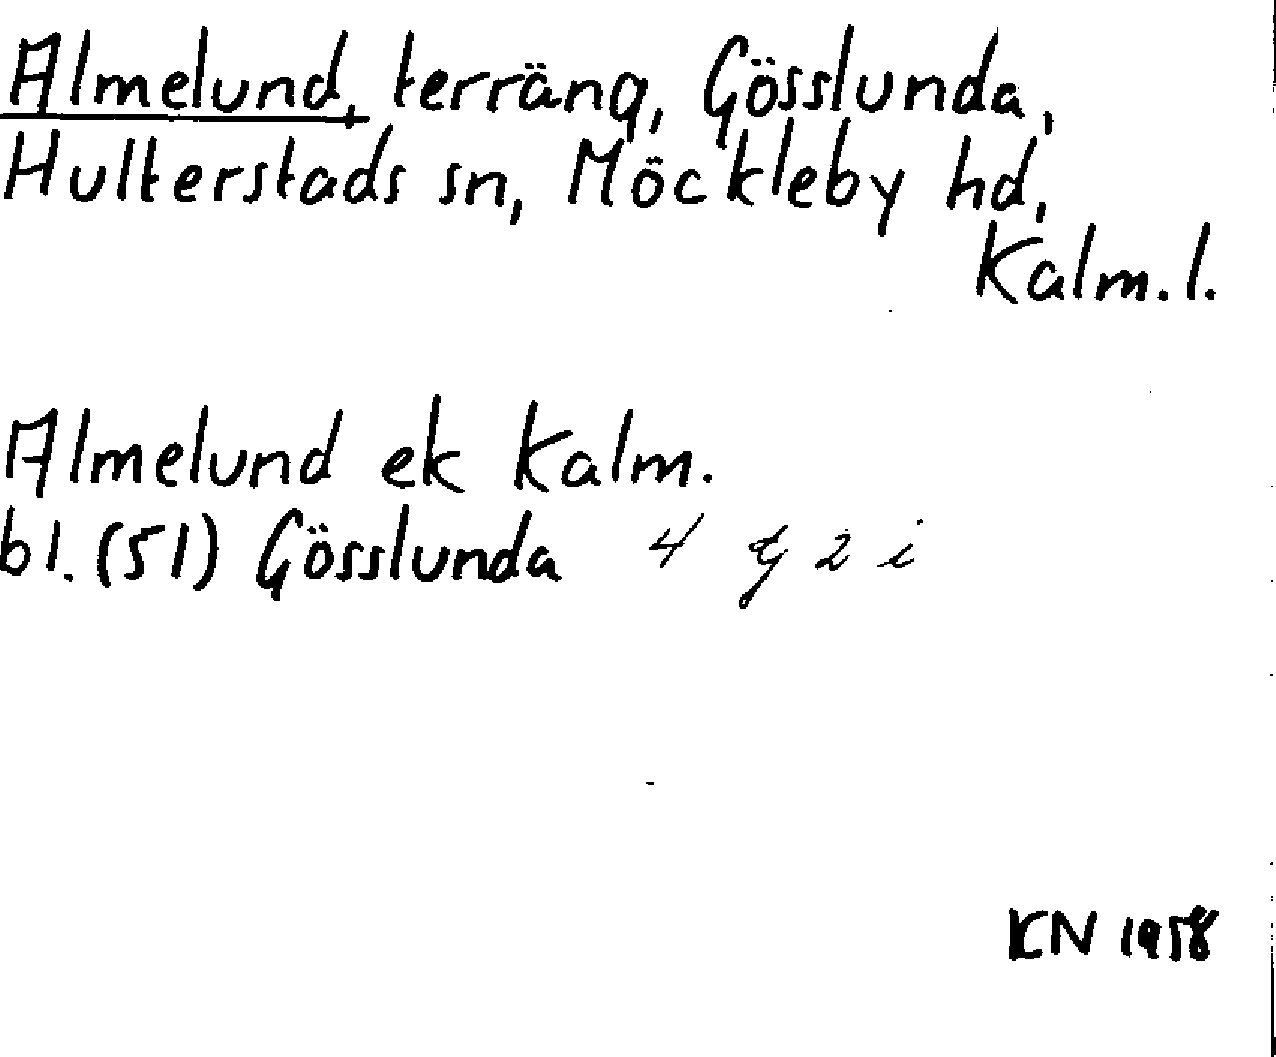 Almelund, terräng, Gösslunda,
Hulterstads sn, Möckleby hd,
Kalm. l.
Almelund ek Kalm.
bl. (51) Gösslunda 4 G 2 i
KN 1958